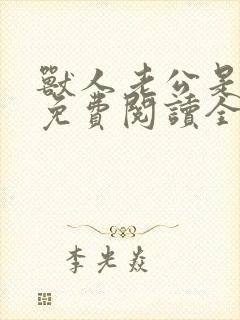 獸人老公是
免費閱讀全
李光焱